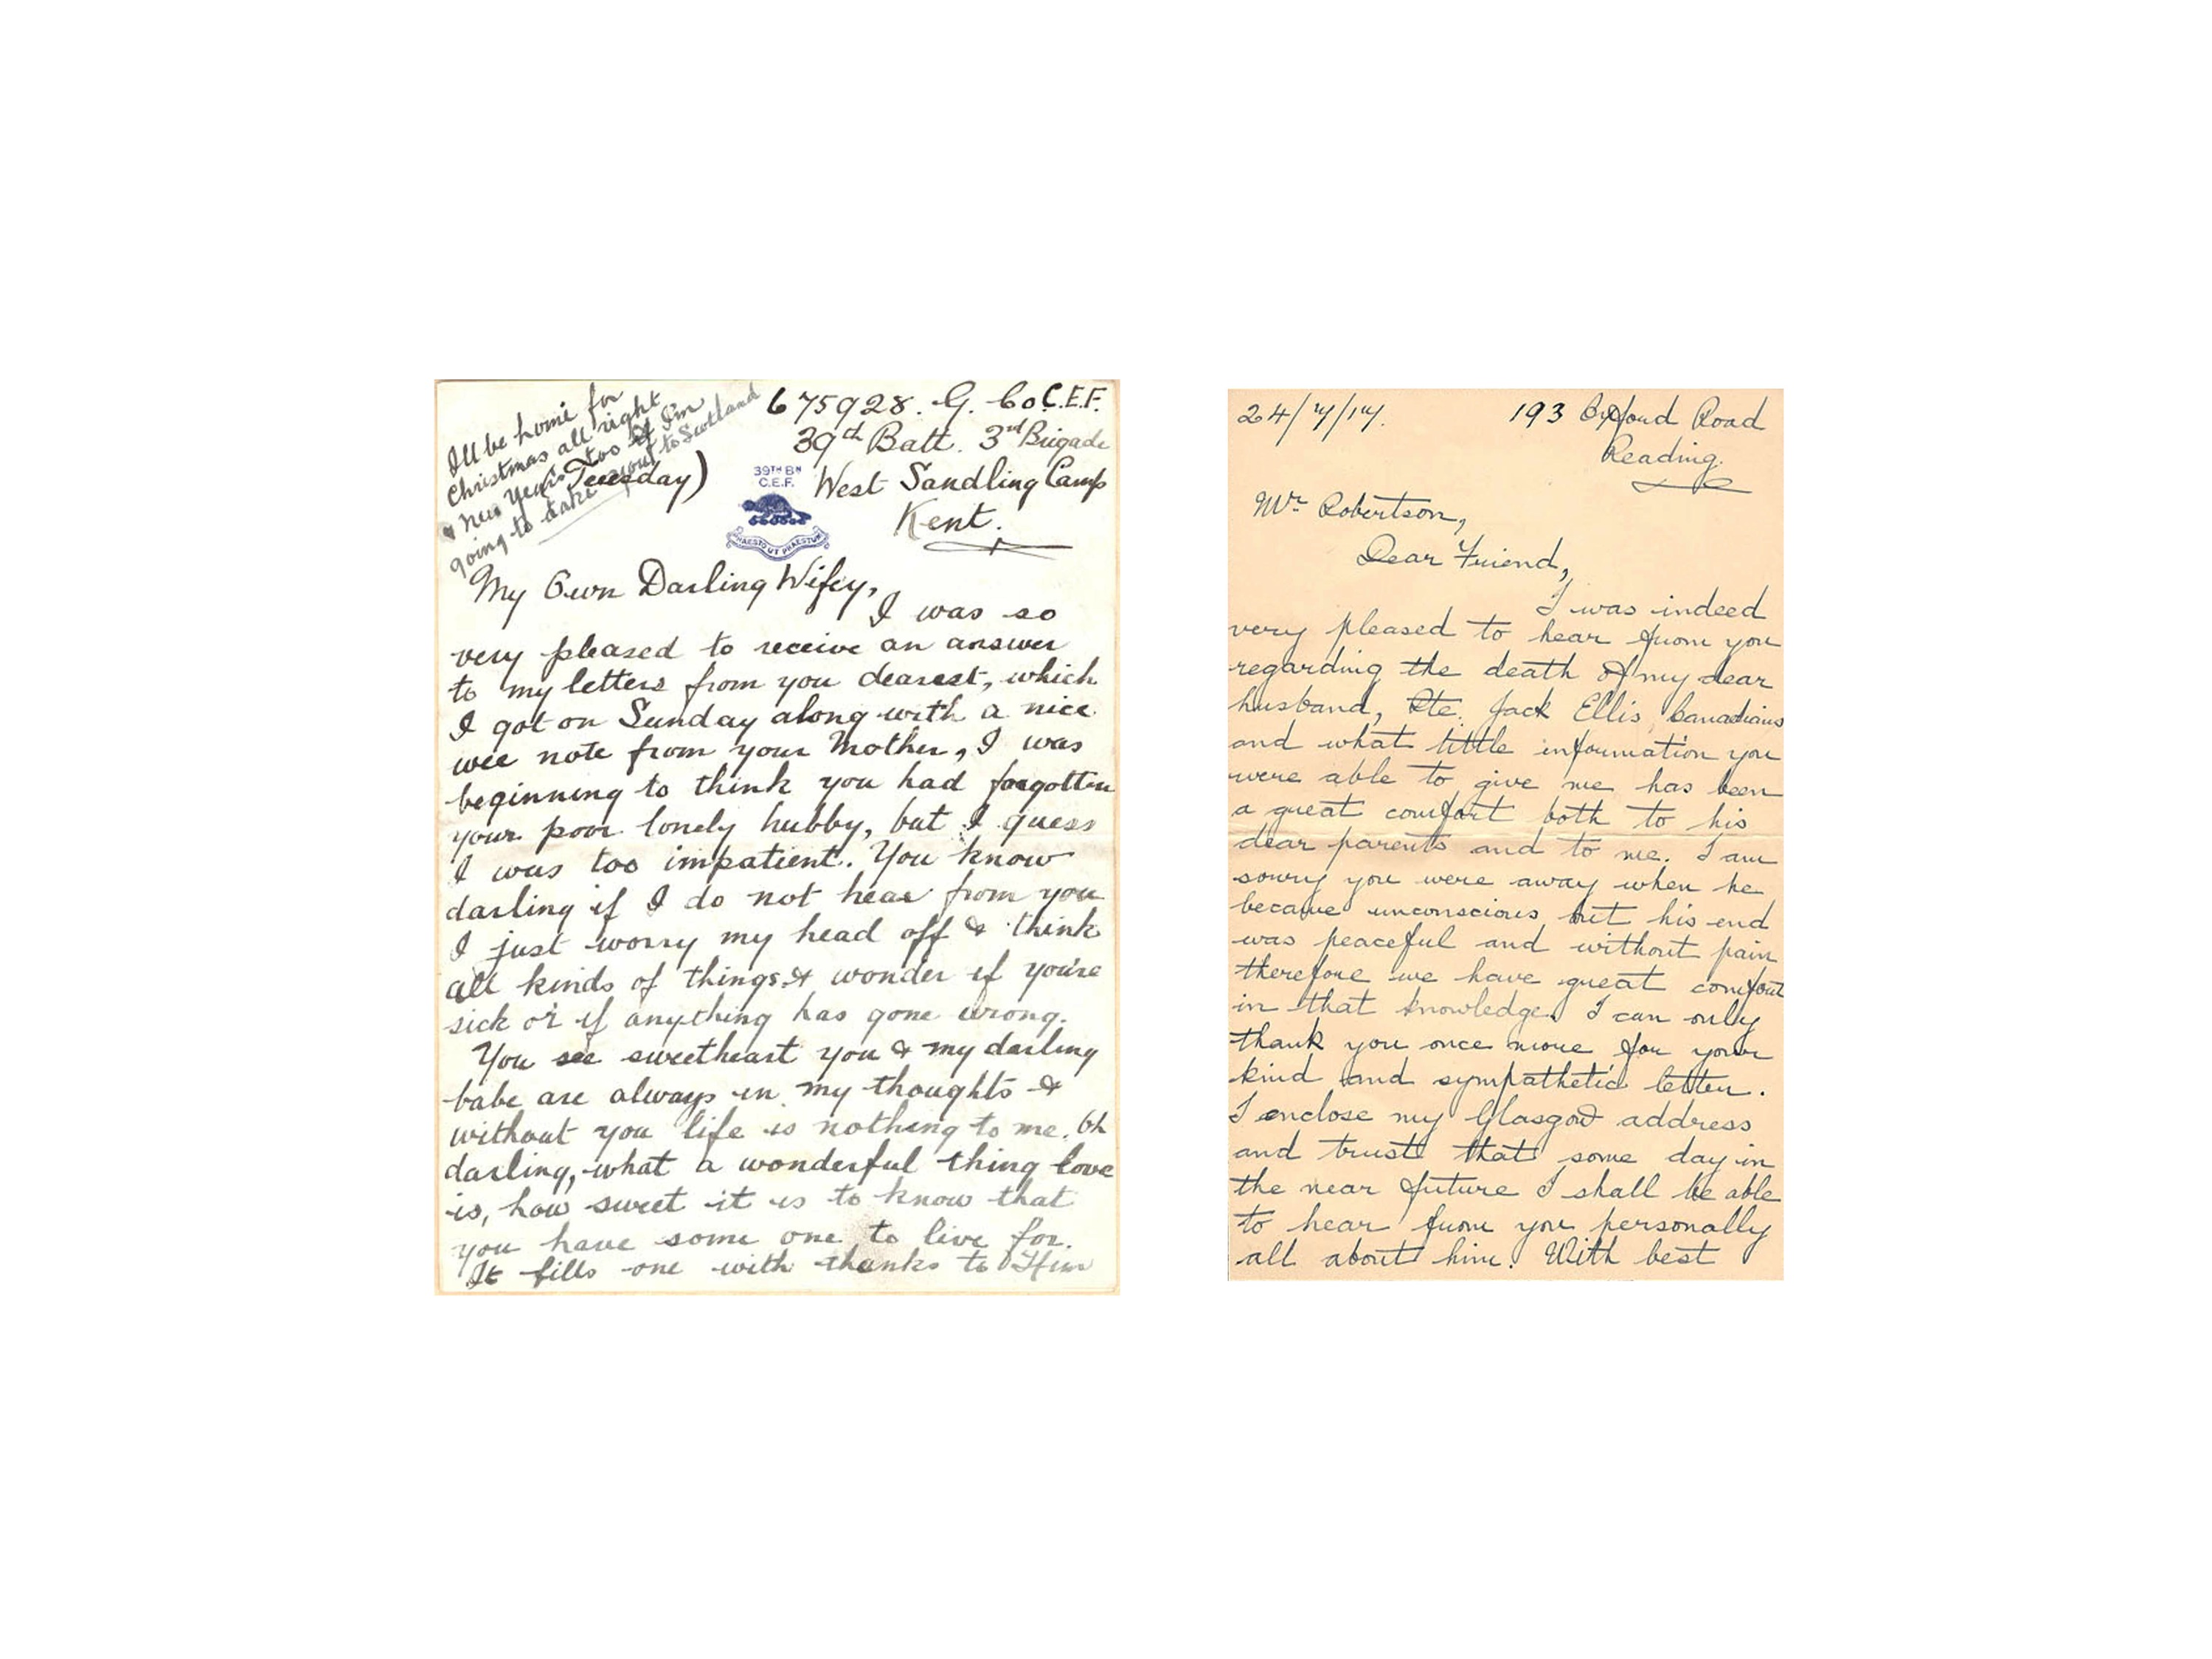 I'll be home for
Christmas all right
& New Year's too if I'm
going to take you to Scotland
Tuesday)
675928. G. Co C.E.F.
39th Batt. 3rd Brigade
West Sandling Camp
Kent.
39TH BN
C.E.F.
My Own Darling Wifey,
I was so
very pleased to receive an answer
to my letters from you dearest, which
I got on Sunday along with a nice
wee note from your Mother, I was
beginning to think you had forgotten
your poor lonely hubby, but I guess
I was too impatient. You know
darling if I do not hear from you
I just worry my head off & think
all kinds of things & wonder if you're
sick or if anything has gone wrong.
You see sweetheart you & my darling
babe are always in my thoughts &
without you life is nothing to me. Oh
darling, what a wonderful thing love
is, how sweet it is to know that
you have some one to live for.
It fills one with thanks to Him
24/7/17.
193 Oxford Road
Reading.
Mr. Robertson,
Dear Friend,
I was indeed
very pleased to hear from you
regarding the death of my dear
husband, Pte. Jack Ellis, Canadians
and what little information you
were able to give me has been
a great comfort both to his
dear parents and to me. I am
sorry you were away when he
became unconscious but his end
was peaceful and without pain
therefore we have great comfort
in that knowledge. I can only
thank you once more for your
kind and sympathetic letter.
I enclose my Glasgow address
and trust that some day in
the near future I shall be able
to hear from you personally
all about him. With best